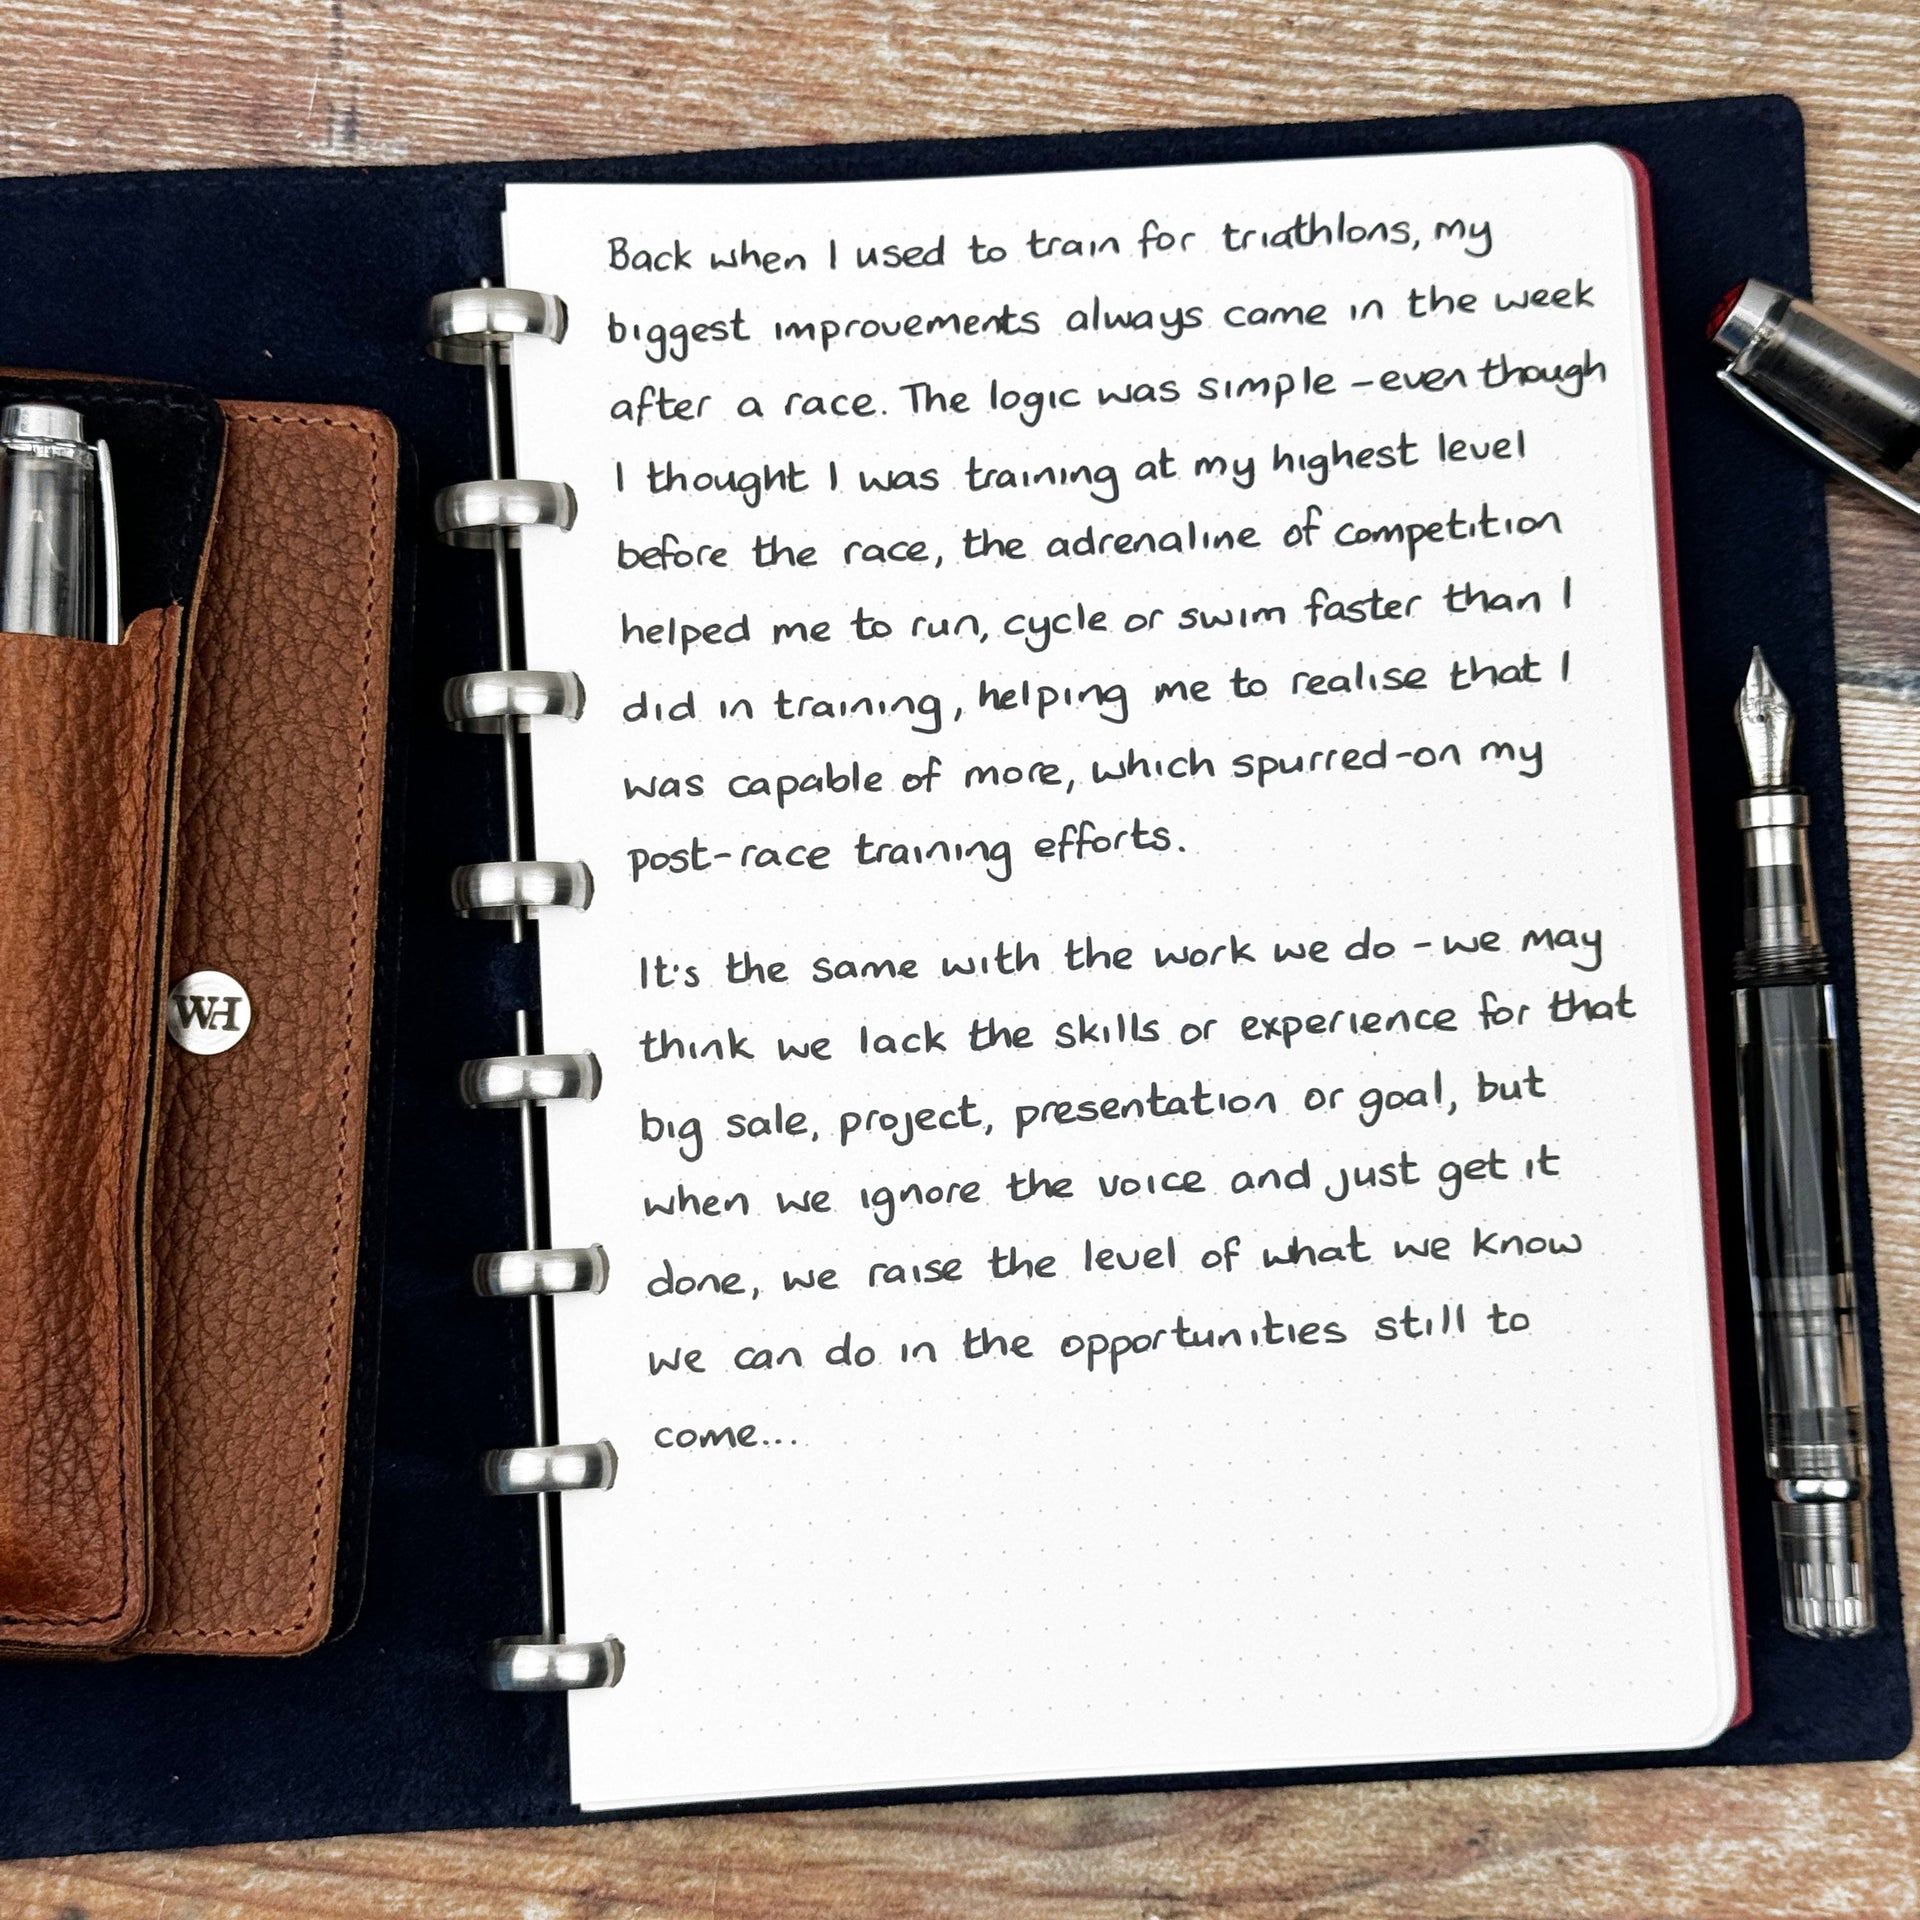 Back when I used to train for triathlons, my
biggest improvements always came in the week
after a race. The logic was simple - even though
I thought I was training at my highest level
before the race, the adrenaline of competition
helped me to run, cycle or swim faster than I
did in training, helping me to realise that I
was capable of more, which spurred-on my
post-race training efforts.
It's the same with the work we do - we may
think we lack the skills or experience for that
big sale, project, presentation or goal, but
when we ignore the voice and just get it
done, we raise the level of what we know
we can do in the opportunities still to
come...
WH